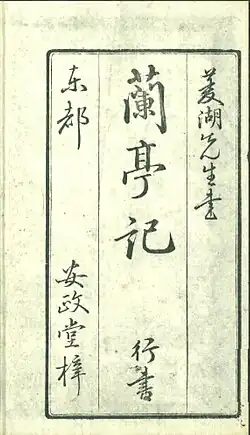 菱湖先生書
蘭亭記
行書
东都
安政堂梓